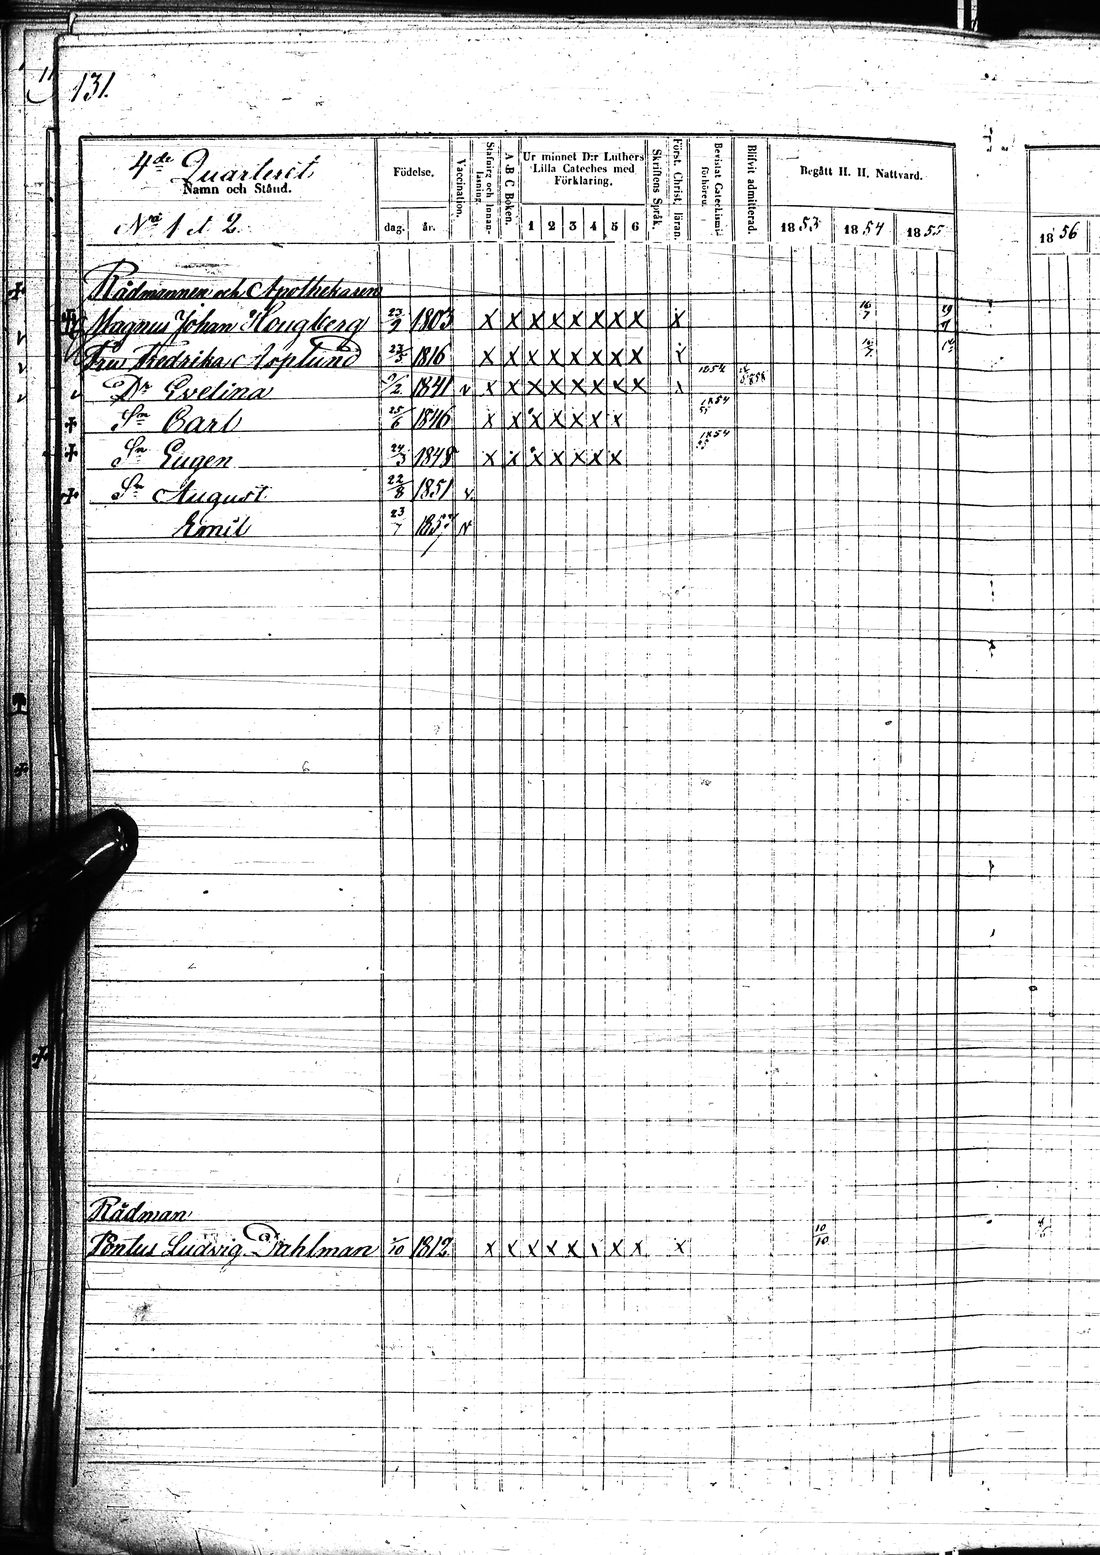 131.
4de Quarteret
Namn och Stånd.
No 1 et 2.
Födelse.
dag. år.
Vaccination.
A B C Boken.
Ur minnet D:r Luthers Lilla Cateches med Förklaring.
1 2 3 4 5 6
Skriftens Språk.
Först. Christ. läran.
Bevistat Catechismi-förhören.
Blifvit admitterad.
Begått H. H. Nattvard.
1853 1854 1855
1856
Rådmannen och Apothekaren
Magnus Johan 23/9 1803 X X X X X X X X X 16/7
Fru Fredrika Asplund 1816 X X X X X X X X X
Dr Evelina 1841 v X X X X X X X X X 1854
Sn Carl 25/6 1846 X X X X X X X 1854
Sn Eugen 24/3 1848 X X X X X X X 1854
Sn August 22/8 1851 v
Emil 23/7
Rådman
Pontus Ludvig Dahlman 1812 X X X X X X X X X 10/10